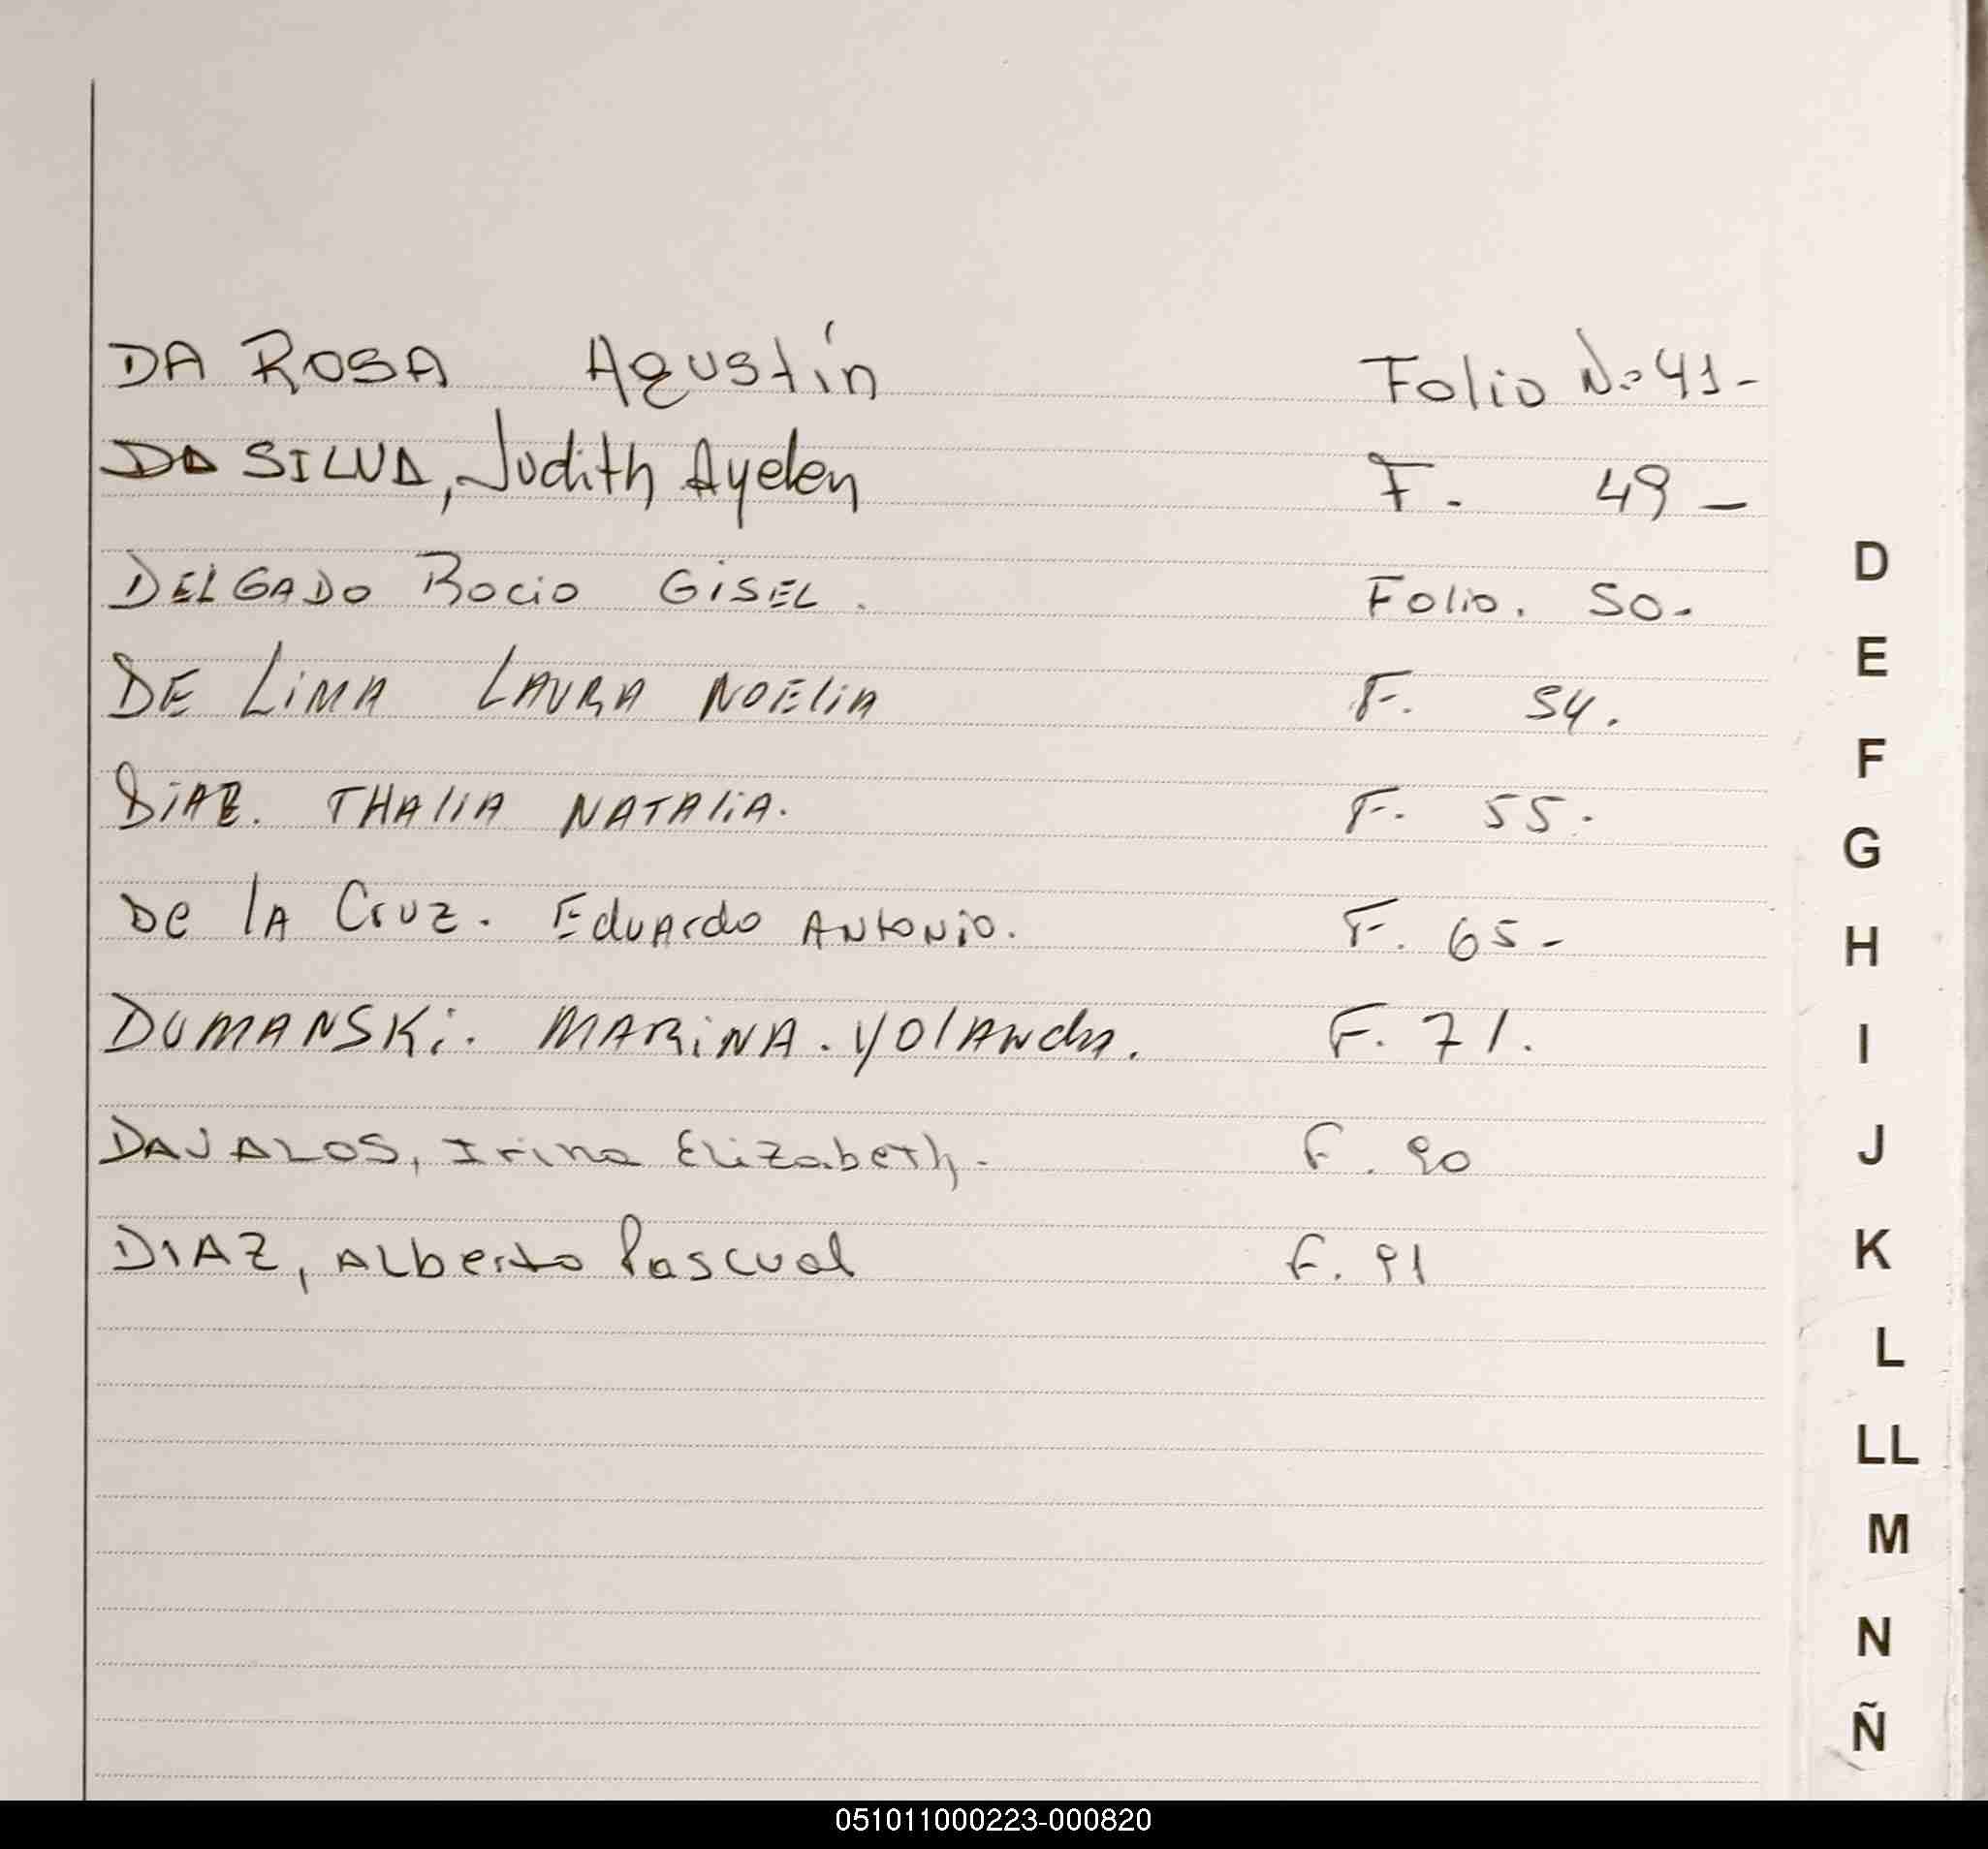 DA ROSA Agustín Folio N.º 41-
DA SILVA, Judith Ayelen F. 49-
DELGADO Rocio GISEL. Folio. 50.
DE LIMA LAURA NOELIA F. 54.
DIAZ. THALIA NATALIA. F. 55.
De lA Cruz. EduArdo ANtoNio. F. 65-
DUMANSKi. MARiNA. YOlANda. F. 71.
DAVALOS, Irina Elizabeth. F. 90
DIAZ, Alberto Pascual F. 91
D
E
F
G
H
I
J
K
L
LL
M
N
Ñ
051011000223-000820